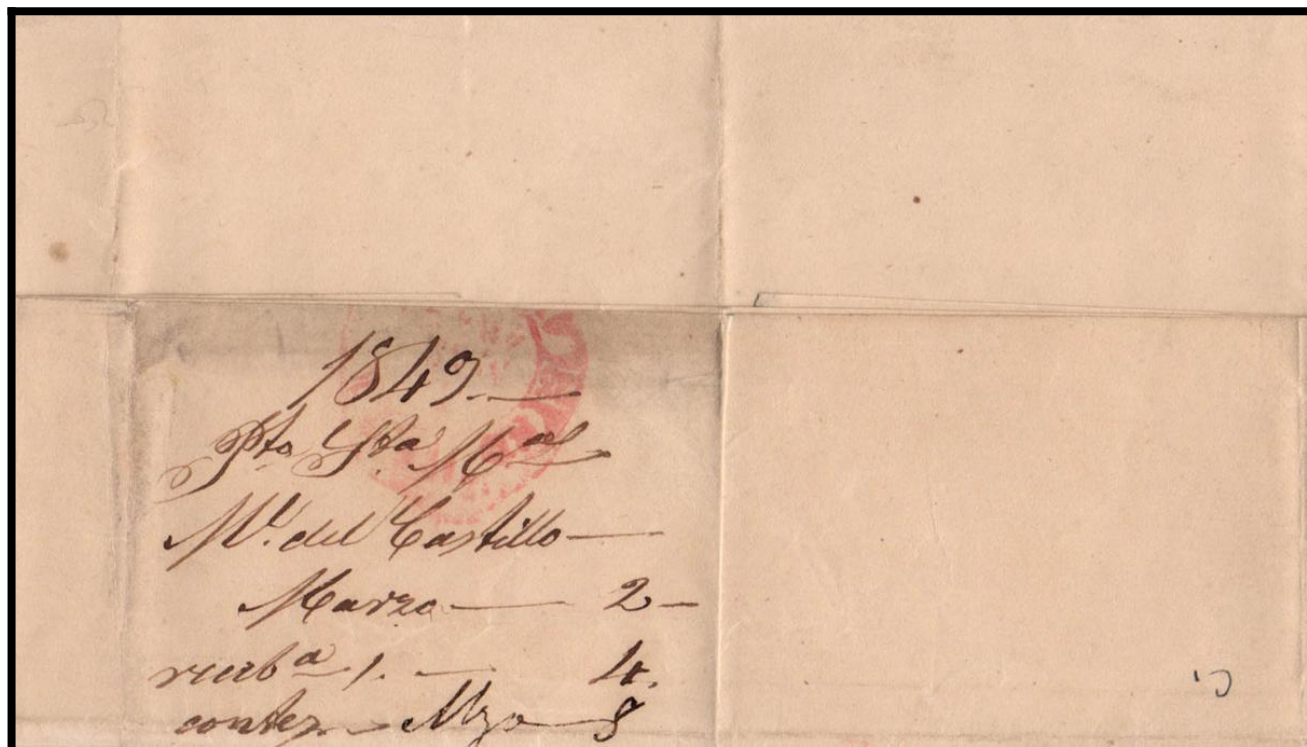 1849.—
Pto Sta Ma
Ml. del Castillo—
Marzo — 2—
recibª — 4.
contez. — Mzo — 8